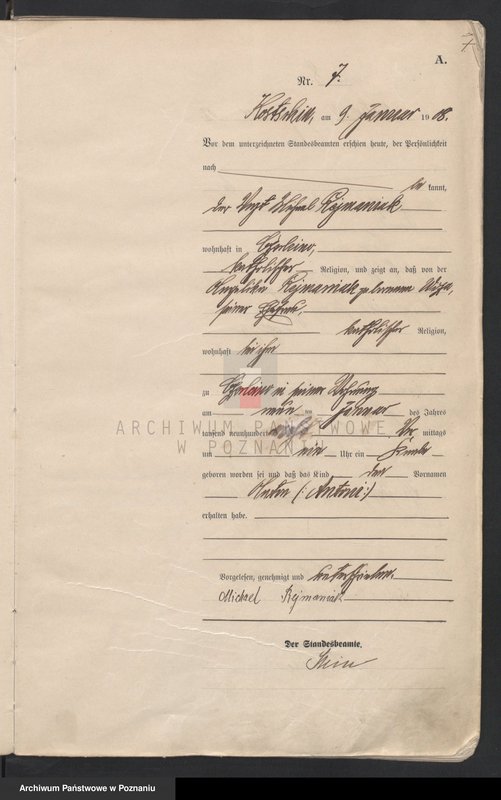 7
A.
Nr. 7.
Kostschin, am 9. Januar 1908.
Vor dem unterzeichneten Standesbeamten erschien heute, der Persönlichkeit
nach
be kannt,
der Vogt Michael Rejmaniak
wohnhaft in
katholischer Religion, und zeigt an, daß von der
Rejmaniak geborenen
seiner Ehefrau,
katholischer Religion,
wohnhaft bei ihm
zu in seiner Wohnung
am Januar des Jahres
tausend neunhundert Vor mittags
um Uhr ein Knabe
geboren worden sei und daß das Kind den Vornamen
Anton (: Antoni :)
erhalten habe.
Vorgelesen, genehmigt und unterschrieben.
Michael Rejmaniak
Der Standesbeamte.
ARCHIWUM PAŃSTWOWE
W POZNANIU
Archiwum Państwowe w Poznaniu